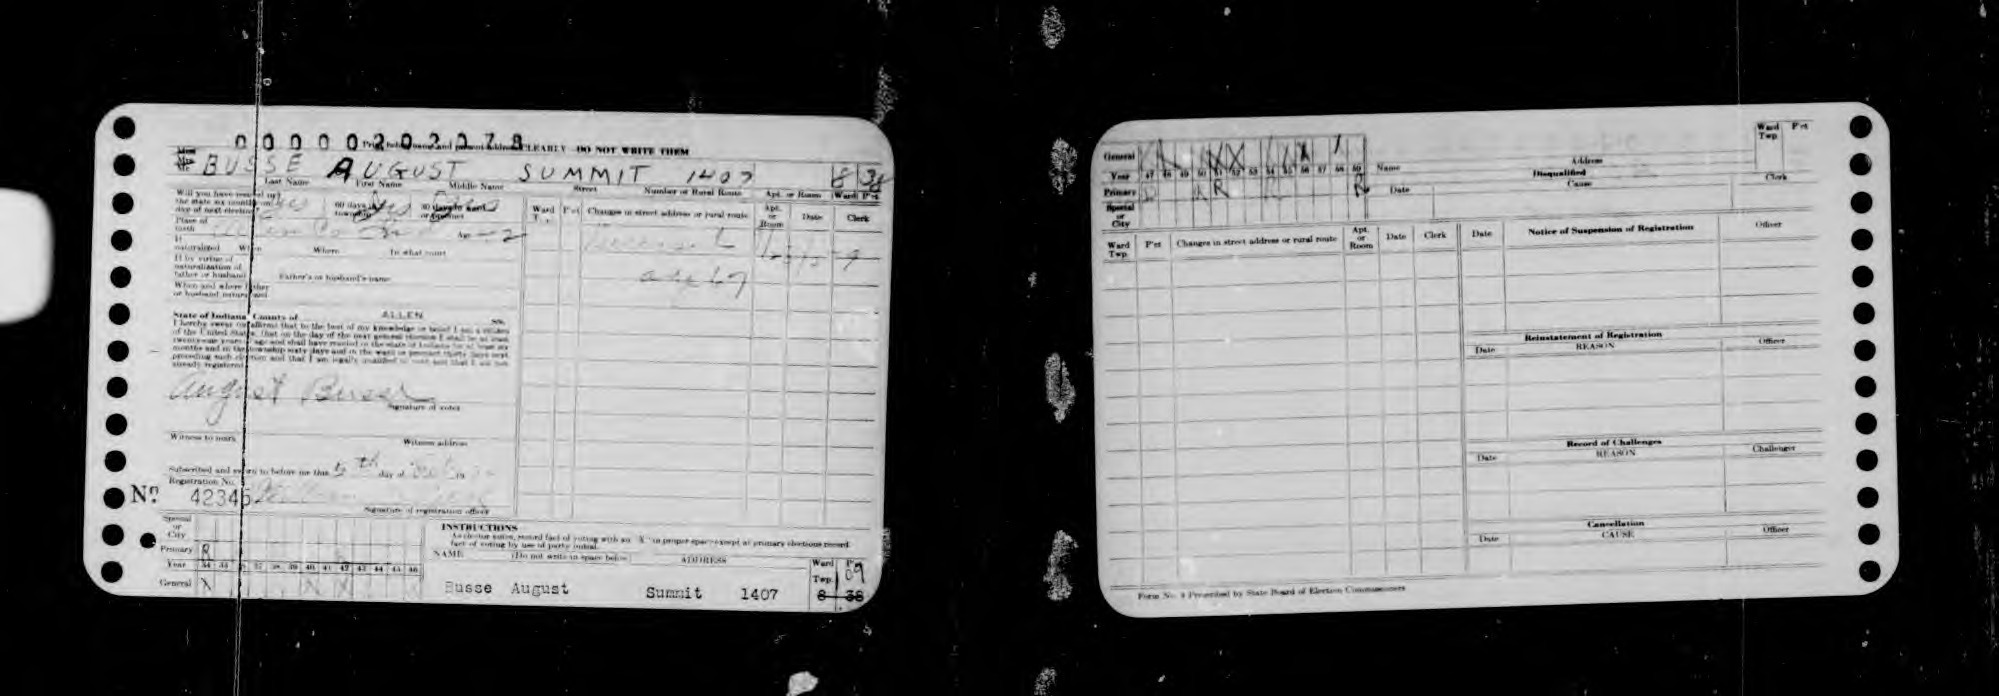 0 0 0 0 0 2 0 2 0 7 8
CLEARLY DO NOT WRITE THEM
BUSSE AUGUST SUMMIT 1407 8 38
Last Name First Name Middle Name Street Number or Rural Route Apt. or Room Ward P'ct
Will you have resided in
the state six months on
day of next election
60 days in
township
Yes
Place of
birth
Allen Co Ind Age
If
naturalized When Where In what court
If by virtue of
naturalization of
father or husband Father's or husband's name
When and where father
or husband naturalized
State of Indiana, County of ALLEN SS.
I hereby swear or affirm that to the best of my knowledge or belief I am a citizen
of the United States, that on the day of the next general election I shall be at least
twenty-one years of age and shall have resided in the state of Indiana for at least six
months and in the township sixty days and in the ward or precinct thirty days next
preceding such election and that I am legally qualified to vote and that I am not
already registered.
August Busse
Signature of voter
Witness to mark Witness address
Subscribed and sworn to before me this 5th day of Oct 19
Registration No.
No. 42345
Signature of registration officer
Ward P'ct Changes in street address or rural route Apt. or Room Date Clerk
Deceased
age 67
Special
or
City
Primary R
Year 34 35 36 37 38 39 40 41 42 43 44 45 46
General X X X
INSTRUCTIONS
As elector votes, record fact of voting with an "X" in proper space except at primary elections record
fact of voting by use of party initial.
NAME (Do not write in space below) ADDRESS
Ward
Twp.
P'ct
09
Busse August Summit 1407 8 38
General
Year 47 48 49 50 51 52 53 54 55 56 57 58 59
Primary R R R
Special
or
City
Name Address
Ward
Twp
P'ct
Disqualified
Date Cause Clerk
Ward
Twp
P'ct Changes in street address or rural route Apt. or Room Date Clerk
Date Notice of Suspension of Registration Officer
Reinstatement of Registration
Date REASON Officer
Record of Challenges
Date REASON Challenger
Cancellation
Date CAUSE Officer
Form No. 4 Prescribed by State Board of Election Commissioners